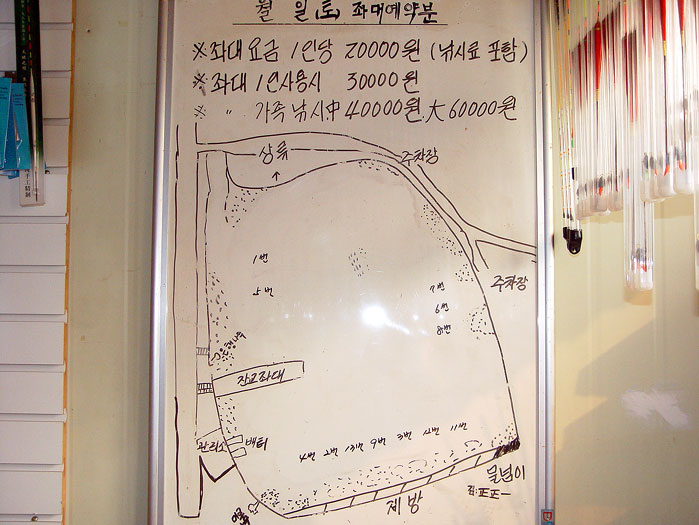 월 일(토) 좌대예약분
※좌대요금 1인당 20000원 (낚시료 포함)
※좌대 1인사용시 30000원
※ " 가족낚시中 40000원.大 60000원
상류
주차장
주차장
1번
5번
7번
6번
8번
잔교좌대
관리소
배터
4번 2번 13번 9번 3번 12번 11번
물넘이
제방